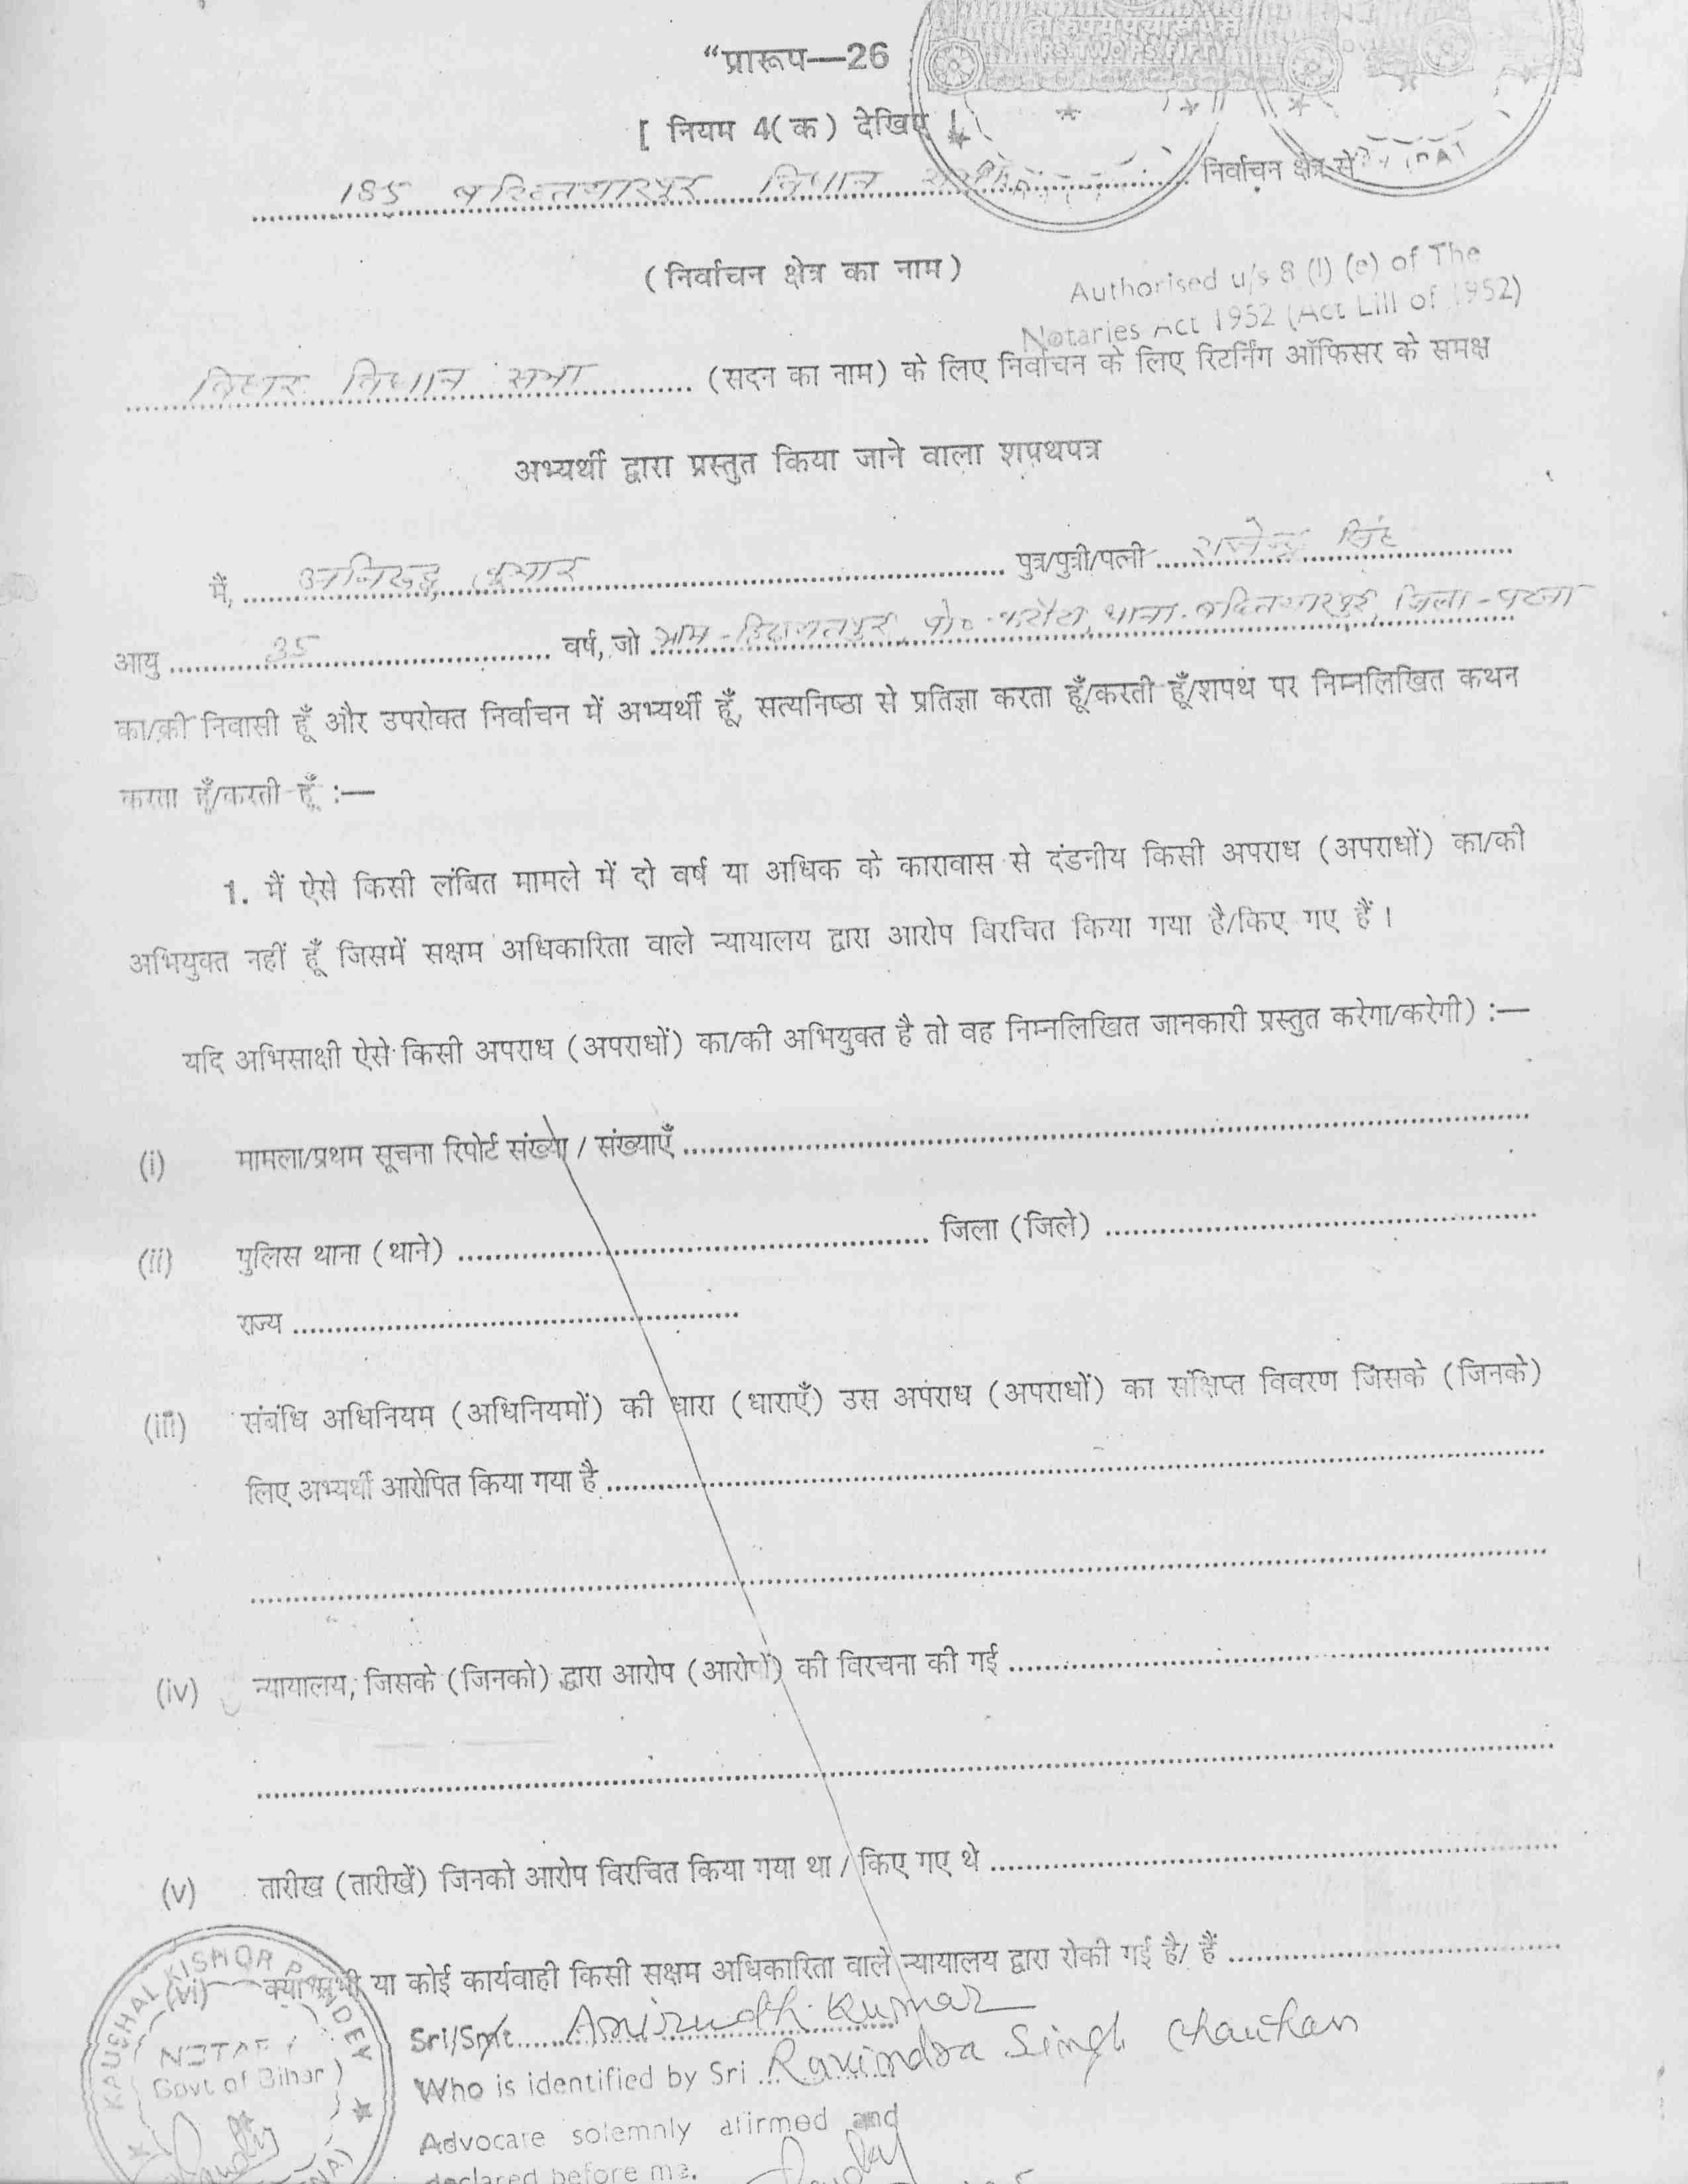 दो रुपये पचास पैसे
RS. TWO PS. FIFTY
“प्रारूप—26
[ नियम 4(क) देखिए ]
185 बख्तियारपुर विधान सभा निर्वाचन क्षेत्र से
(निर्वाचन क्षेत्र का नाम)
Authorised u/s 8 (I) (e) of The
Notaries Act 1952 (Act LIII of 1952)
बिहार विधान सभा (सदन का नाम) के लिए निर्वाचन के लिए रिटर्निंग ऑफिसर के समक्ष
अभ्यर्थी द्वारा प्रस्तुत किया जाने वाला शपथपत्र
मैं, अनिरुद्ध कुमार पुत्र/पुत्री/पत्नी राजेन्द्र सिंह
आयु 35 वर्ष, जो ग्राम - पो० - थाना - बख्तियारपुर, जिला - पटना
का/की निवासी हूँ और उपरोक्त निर्वाचन में अभ्यर्थी हूँ, सत्यनिष्ठा से प्रतिज्ञा करता हूँ/करती हूँ/शपथ पर निम्नलिखित कथन
करता हूँ/करती हूँ :—
1. मैं ऐसे किसी लंबित मामले में दो वर्ष या अधिक के कारावास से दंडनीय किसी अपराध (अपराधों) का/की
अभियुक्त नहीं हूँ जिसमें सक्षम अधिकारिता वाले न्यायालय द्वारा आरोप विरचित किया गया है/किए गए हैं।
यदि अभिसाक्षी ऐसे किसी अपराध (अपराधों) का/की अभियुक्त है तो वह निम्नलिखित जानकारी प्रस्तुत करेगा/करेगी) :—
(i) मामला/प्रथम सूचना रिपोर्ट संख्या / संख्याएँ
(ii) पुलिस थाना (थाने) जिला (जिले)
राज्य
(iii) संबंधि अधिनियम (अधिनियमों) की धारा (धाराएँ) उस अपराध (अपराधों) का संक्षिप्त विवरण जिसके (जिनके)
लिए अभ्यर्थी आरोपित किया गया है
(iv) न्यायालय, जिसके (जिनको) द्वारा आरोप (आरोपों) की विरचना की गई
(v) तारीख (तारीखें) जिनको आरोप विरचित किया गया था / किए गए थे
(vi) क्या सभी या कोई कार्यवाही किसी सक्षम अधिकारिता वाले न्यायालय द्वारा रोकी गई है/ हैं
KAUSHAL KISHOR PANDEY
NOTARY
Govt of Bihar)
Sri/Smt. Anirudh Kumar
Who is identified by Sri Ravindra Singh Chauhan
Advocate solemnly afirmed and
declared before me.